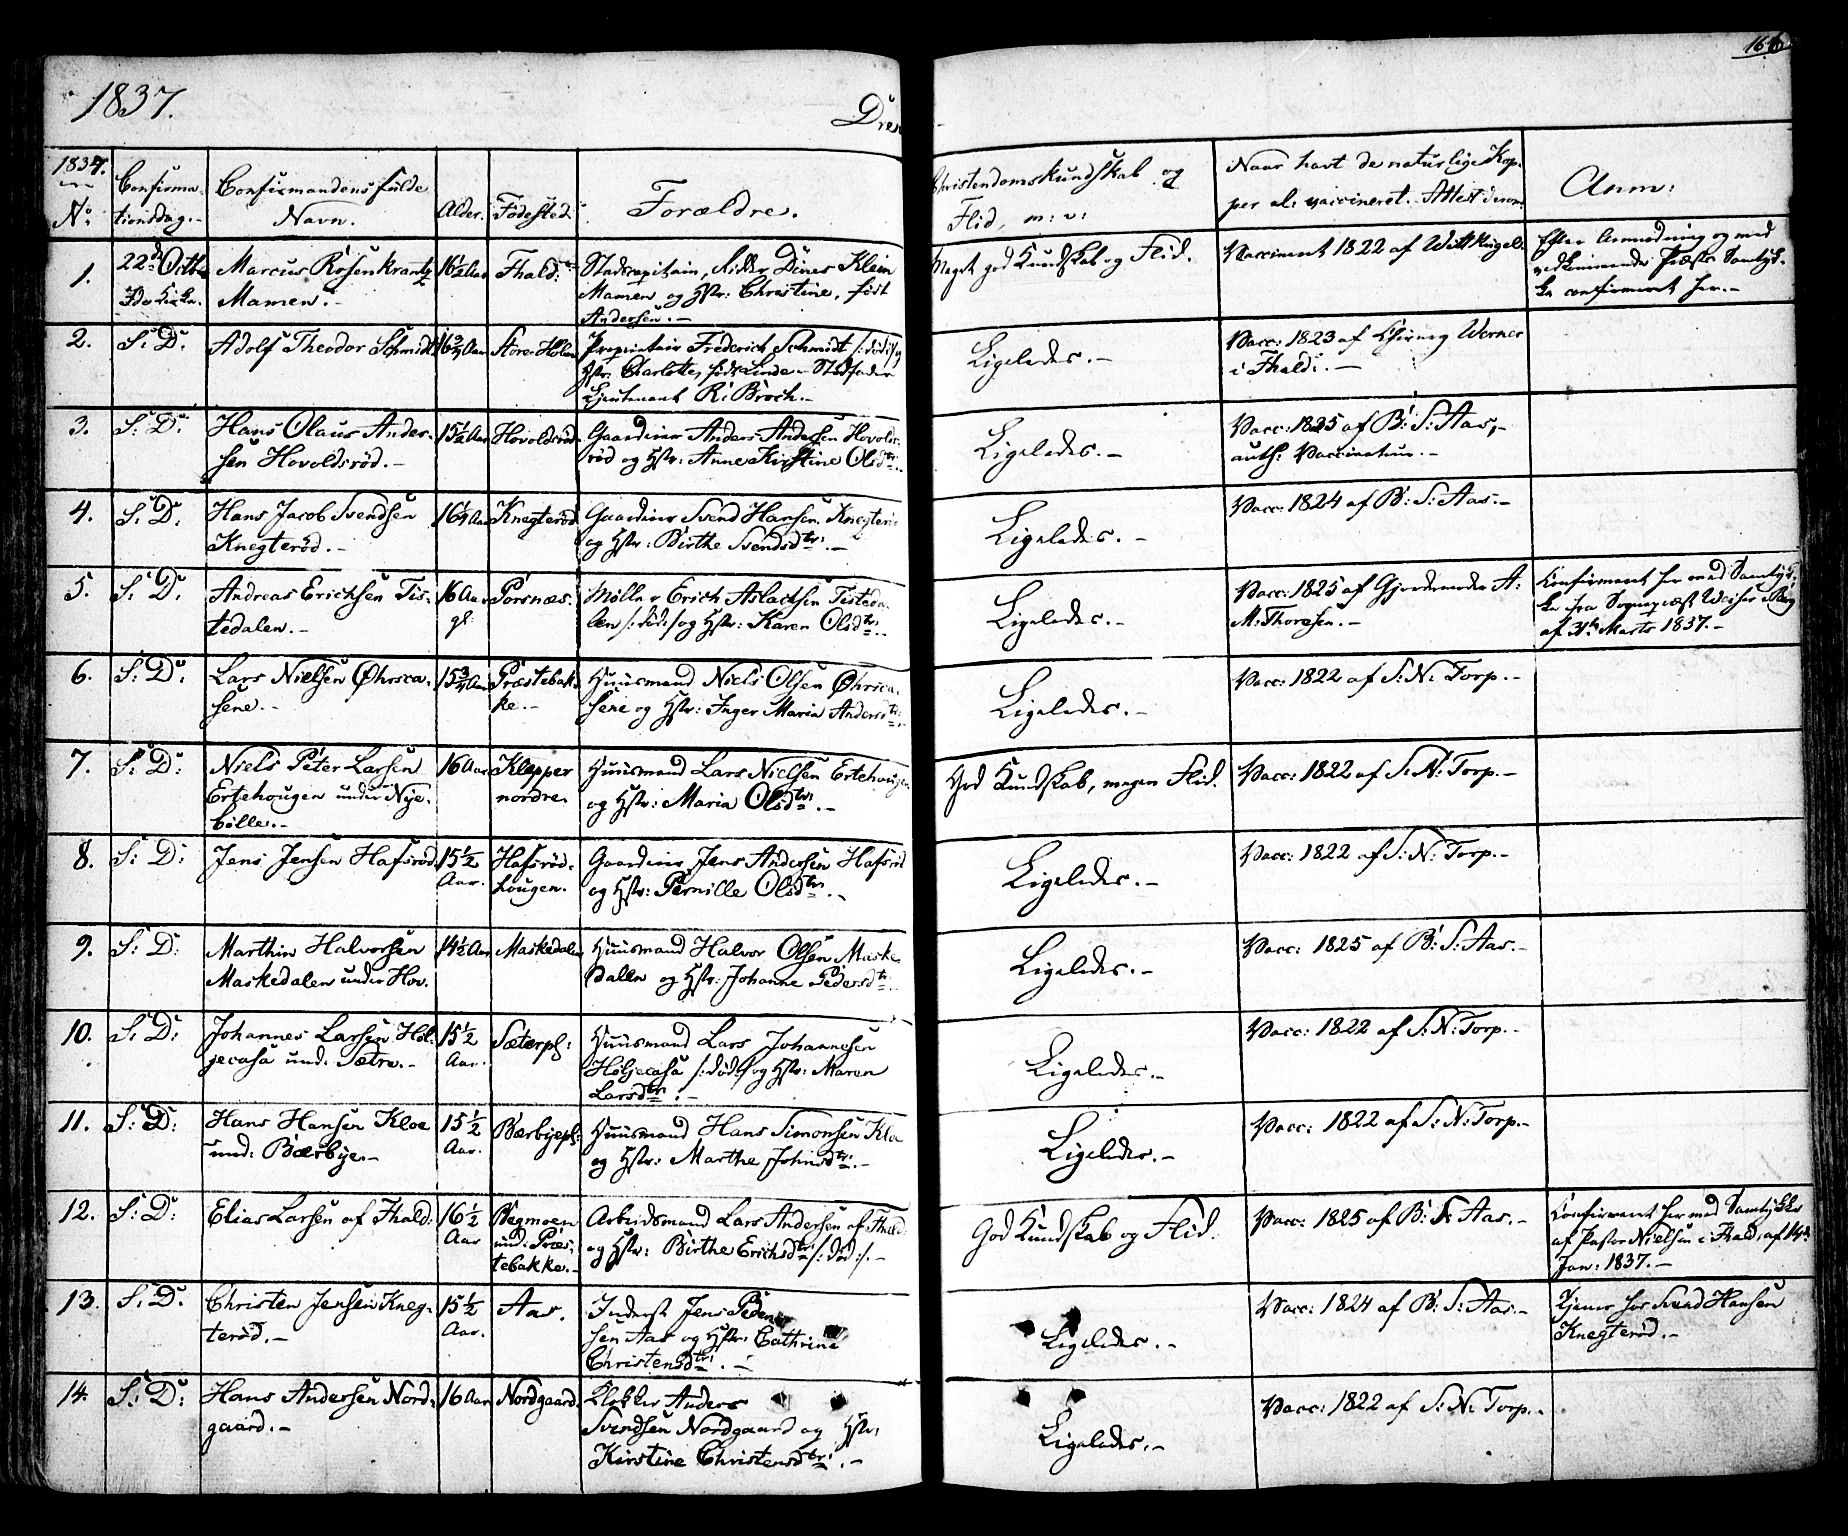 1837.
Dren
166
1837.
No
Confirma-
tionsdag.-
Confirmandens fulde
Navn.
Alder.
Fødested
Forældre.
Christendomskundskab og
Flid, m: v:
Naar havt de naturlige Kop-
per el: vaccineret. Attest derom
Anm:
1.
22d Octbr
Idd Kirke.
Marcus Rosenkrantz
Mamen.-
16½ Aar
Fhald:
Stadscapitain, Ridder Dines Klein
Mamen og Hstr: Christine, født
Andersen.-
Meget god Kundskab og Flid.
Vaccineret 1822 af Wittkugel.
Efter Anmodning og med
vedkommende Præsts Samtyk-
ke confirmeret her.-
2.
S: D:
Adolf Theodor Schmidt
16¾ Aar
Store-Holm
Proprietair Frederich Schmidt /:død:/ og
Hstr: Charlotte, født Linde - Stedfader
Lieutenant R: Broch.-
Ligeledes.-
Vacc: 1823 af Chirurg Werner
i Fhald:.-
3.
S: D:
Hans Olaus Ander-
sen Hovoldsrød.-
15½ Aar
Hovoldsrød
Gaardmr Anders Andersen Hovolds-
rød og Hstr: Anne Kirstine Olsdtr:-
Ligeledes.-
Vacc: 1825 af B: S: Aas,-
auth: Vaccinateur.-
4.
S: D:
Hans Jacob Svendsen
Knegterød.-
16¼ Aar
Knegterød
Gaardmr Svend Hansen Knegterød
og Hstr: Birthe Svendsdtr:-
Ligeledes.-
Vacc: 1824 af B: S: Aas.-
5.
S: D:
Andreas Erichsen Tis-
tedalen.-
16 Aar
gl:
Porsnæs.
Møller Erich Aslachsen Tisteda-
len /:død:/ og Hstr: Karen Olsdtr:-
Ligeledes.-
Vacc: 1825 af Gjordemoder A:
M: Thoresen.-
Confirmeret her med Samtyk-
ke fra Sognepræst Weiser i Berg
af 31te Marts 1837.-
6.
S: D:
Lars Nielsen Øhrsca-
sene.-
15¾ Aar
Præstebak-
ke.-
Huusmand Niels Olsen Øhrsca-
sene og Hstr: Inger Maria Andersdtr:
Ligeledes.-
Vacc: 1822 af S: N: Torp.-
7.
S: D:
Niels Peter Larsen
Ertehougen under Nye-
bølle.-
16 Aar
Klepper
nordre.
Huusmand Lars Nielsen Ertehougen
og Hstr: Maria Olsdtr:-
God Kundskab, megen Flid.
Vacc: 1822 af S: N: Torp.-
8.
S: D:
Jens Jensen Hafsrød.
15½
Aar.
Hafsrød-
hougen.
Gaardmr Jens Andersen Hafsrød
og Hstr: Pernille Olsdtr:-
Ligeledes.-
Vacc: 1822 af S: N: Torp.-
9.
S: D:
Marthin Halvorsen
Maskedalen under Hov.
14½ Aar
Maskedalen
Huusmand Halvor Olsen Maske-
dalen og Hstr: Johanne Pedersdtr:
Ligeledes.-
Vacc: 1825 af B: S: Aas.-
10.
S: D:
Johannes Larsen Høl-
jecasa und: Sætre.-
15½
Aar.
Sæterpl:
Huusmand Lars Johannesen
Høljecasa /:død:/ og Hstr: Maren
Larsdtr:-
Ligeledes.-
Vacc: 1822 af S: N: Torp.-
11.
S: D:
Hans Hansen Kloe
und: Bærbye.-
15½
Aar.
Bærbyepl:
Huusmand Hans Simonsen Kloe
og Hstr: Marthe Johnsdtr:-
Ligeledes.-
Vacc: 1822 af S: N: Torp.-
12.
S: D:
Elias Larsen af Fhald:
16½
Aar
Bøgmoen
und: Præs-
tebakke.-
Arbeidsmand Lars Andersen af Fhald:
og Hstr: Birthe Erichsdtr: /:død:/.-
God Kundskab og Flid.
Vacc: 1825 af B: S: Aas.-
Confirmeret her med Samtykke
af Pastor Nielsen i Fhald: af 14de
Jan: 1837.-
13.
S: D:
Christen Jensen Kneg-
terød.-
15½
Aar.
Aas.
Inderst Jens Peder-
sen Aas og Hstr: Cathrine
Christensdtr:-
Ligeledes.-
Vacc: 1824 af B: S: Aas.-
Tjener hos Svend Hansen
Knegterød.-
14.
S: D:
Hans Andersen Nord-
gaard.-
16 Aar
Nordgaard.
Klokker Anders
Svendsen Nordgaard og Hstr:
Kirstine Christensdtr:-
Ligeledes.-
Vacc: 1822 af S: N: Torp.-